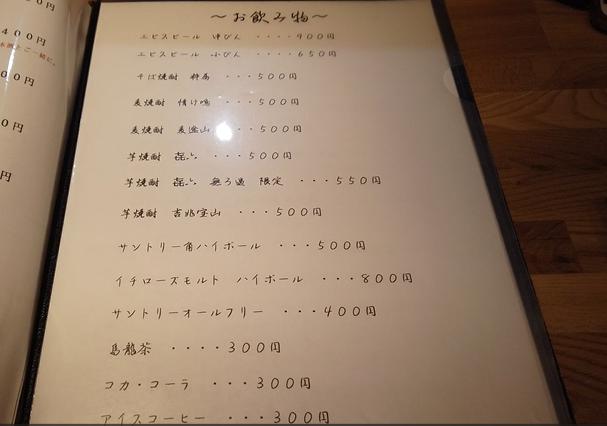 ～お飲み物～
エビスビール 中びん ・・・・９００円
エビスビール 小びん ・・・・６５０円
そば焼酎 ・・・５００円
麦焼酎 情け嶋 ・・・５００円
麦焼酎 ・・５００円
芋焼酎 㐂六 ・・・５００円
芋焼酎 㐂六 無ろ過 限定 ・・・５５０円
芋焼酎 吉兆宝山 ・・・５００円
サントリー角ハイボール ・・・５００円
イチローズモルト ハイボール ・・・８００円
サントリーオールフリー ・・・４００円
烏龍茶 ・・・・３００円
コカ・コーラ ・・・３００円
アイスコーヒー ・・・３００円
０円
４００円
００円
０円
円